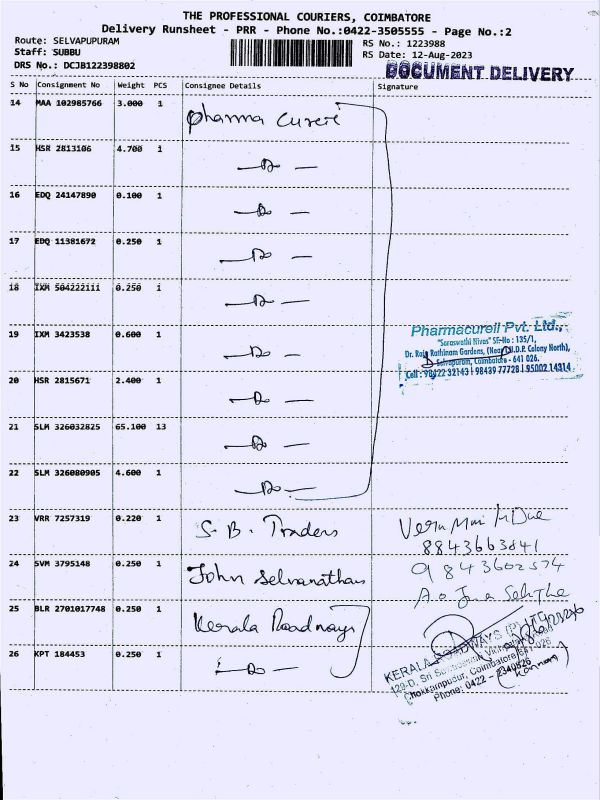 THE PROFESSIONAL COURIERS, COIMBATORE
Delivery Runsheet - PRR - Phone No.:0422-3505555 - Page No.:2
Route: SELVAPUPURAM
Staff: SUBBU
DRS No.: DCJB122398802
RS No.: 1223988
RS Date: 12-Aug-2023
DOCUMENT DELIVERY
S No Consignment No Weight PCS Consignee Details Signature
14 MAA 102985766 3.000 1 Pharma Cureri
15 HSR 2813106 4.700 1 — Do —
16 EDQ 24147890 0.100 1 — Do —
17 EDQ 11381672 0.250 1 — Do —
18 IXM 504222111 0.250 1 — Do —
19 IXM 3423538 0.600 1 — Do —
Pharmacurell Pvt. Ltd.,
"Saraswathi Nivas" SF-No : 135/1,
Dr. Raja Rathinam Gardens, (Near N.D.P. Colony North),
Selvapuram, Coimbatore - 641 026.
Cell : 98422 32143 | 98439 77728 | 95002 14314
20 HSR 2815671 2.400 1 — Do —
21 SLM 326032825 65.100 13 — Do —
22 SLM 326080905 4.600 1 — Do —
23 VRR 7257319 0.220 1 S. B. Traders
8843663841
24 SVM 3795148 0.250 1 John Selvanathan
9843602574
25 BLR 2701017748 0.250 1 Kerala Roadways
KERALA ROADWAYS (P) LTD
129-D, Sri
Chokkampudur, Coimbatore 641 026
Phone: 0422 - 2340626
(Kannan)
26 KPT 184453 0.250 1 — Do —